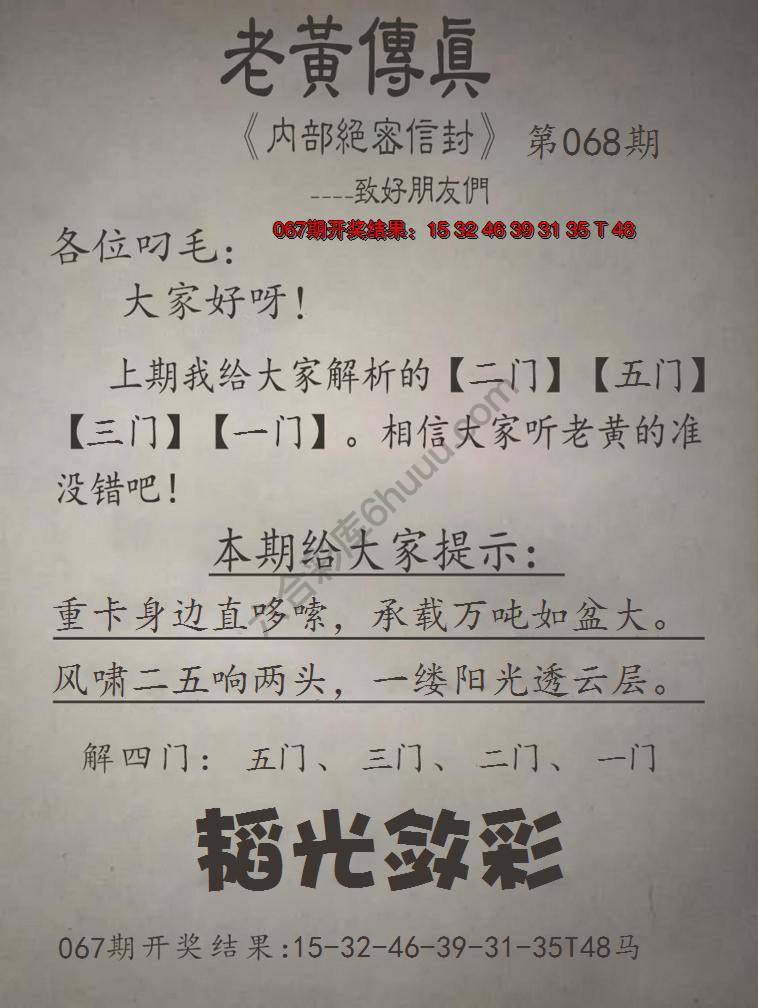 老黃傳真
《内部絕密信封》 第068期
----致好朋友們
067期开奖结果：15 32 46 39 31 35 T 48
各位叼毛：
大家好呀！
上期我给大家解析的【二门】【五门】
【三门】【一门】。相信大家听老黄的准
没错吧！
本期给大家提示：
重卡身边直哆嗦，承载万吨如盆大。
风啸二五响两头，一缕阳光透云层。
解四门：五门、三门、二门、一门
韬光敛彩
067期开奖结果:15-32-46-39-31-35T48马
六合彩库6huuu.com